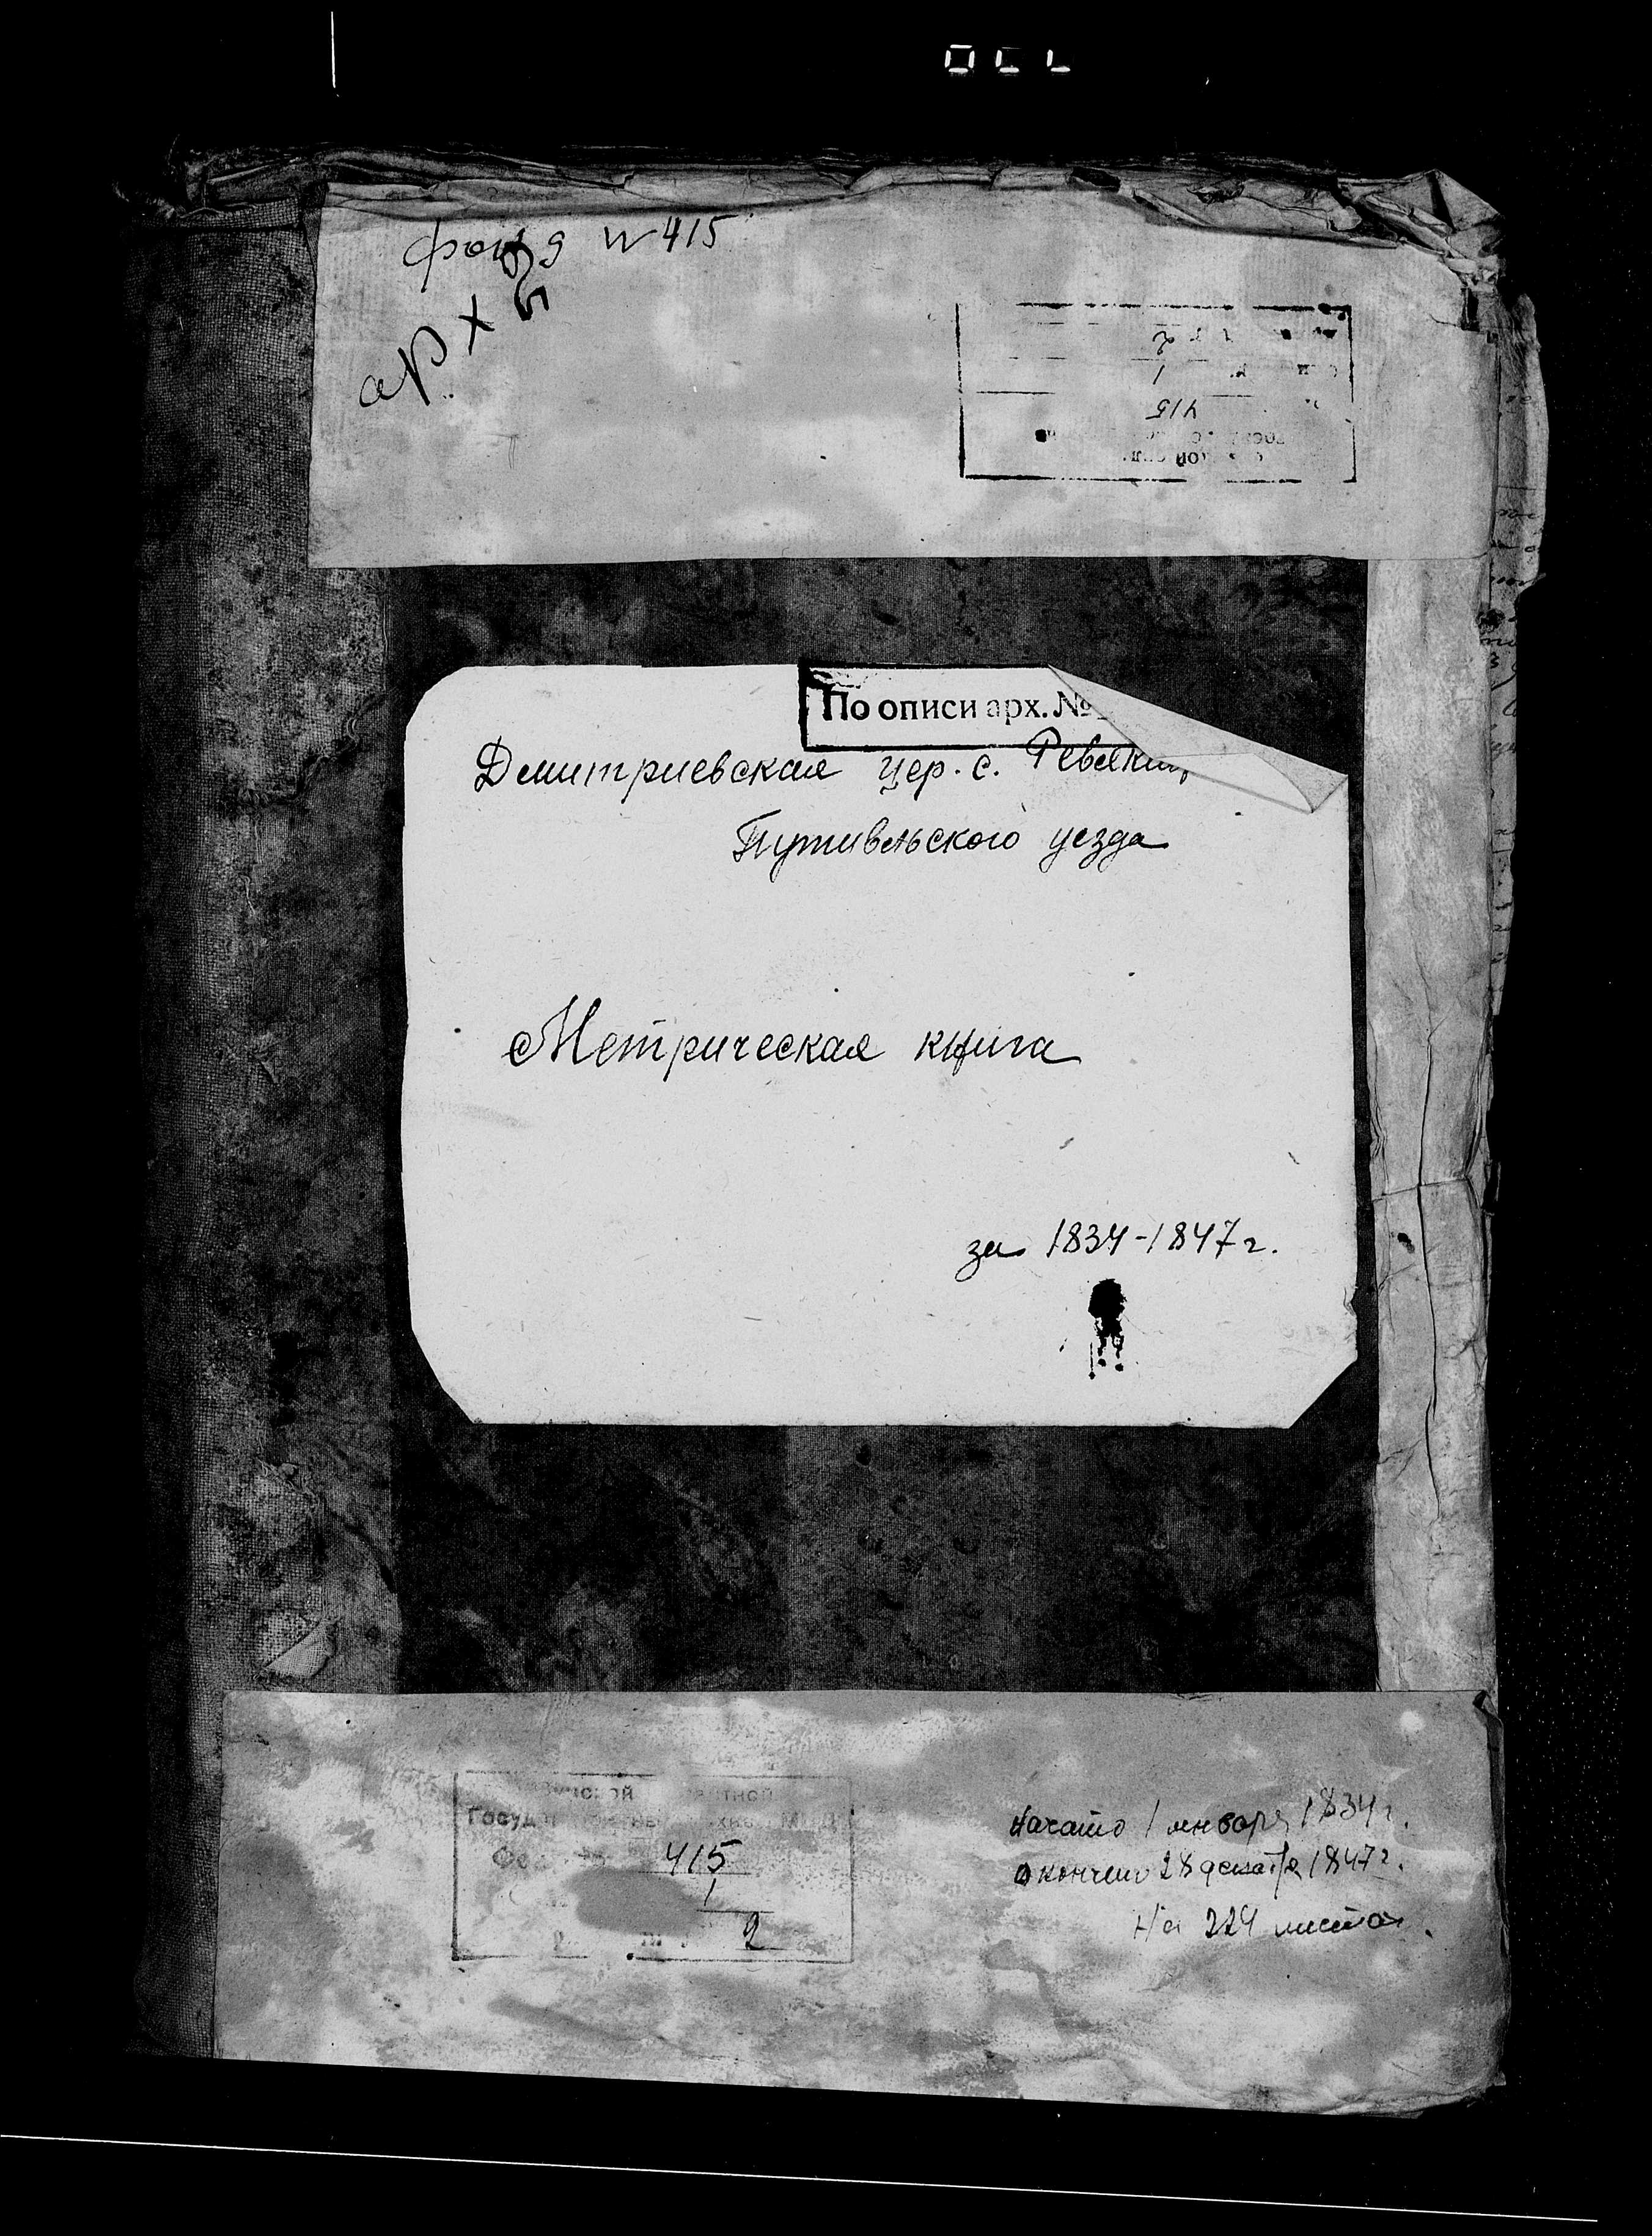 фонд № 415
арх
415
1
2
По описи арх. №
Дмитриевская цер. с. Ревякин
Путивльского уезда
Метрическая книга
за 1834-1847 г.
415
1
2
Начато 1 января 1834 г.
Окончено 28 декабря 1847 г.
На 224 листах.